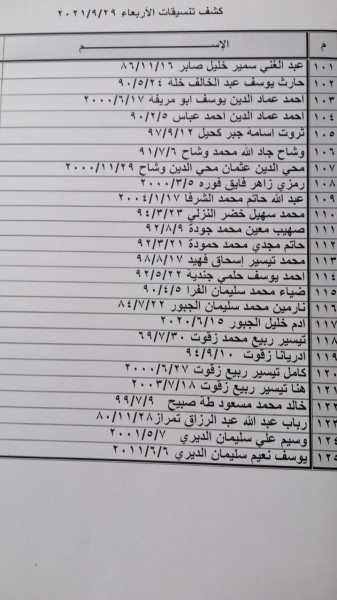 كشف تنسيقات الأربعاء ٢٠٢١/٩/٢٩
م الإســـم
١٠١ عبد الغني سمير خليل صابر ٨٦/١١/١٦
١٠٢ حارث يوسف عبد الخالق خلة ٩٠/٥/٢٤
١٠٣ احمد عماد الدين يوسف ابو مريفة ٢٠٠٠/٦/١٧
١٠٤ احمد عماد الدين احمد عباس ٩٠/٢/٥
١٠٥ ثروت اسامة جبر كحيل ٩٧/٩/١٢
١٠٦ وشاح جاد الله محمد وشاح ٩١/٧/٦
١٠٧ محي الدين عثمان محي الدين وشاح ٢٠٠٠/١١/٢٩
١٠٨ رمزي زاهر فايق قوره ٢٠٠٠/٣/٥
١٠٩ عبد الله حاتم محمد الشرفا ٢٠٠٤/١/١٧
١١٠ محمد سهيل خضر النزلي ٩٤/٣/٢٣
١١١ صهيب معين محمد جودة ٩٢/٨/٩
١١٢ حاتم مجدي محمد حمودة ٩٢/٣/٢١
١١٣ محمد تيسير إسحاق فهيد ٩٨/٨/١٧
١١٤ احمد يوسف حلمي جندية ٩٢/٥/٢٢
١١٥ ضياء محمد سليمان الفرا ٩٠/٤/٥
١١٦ نارمين محمد سليمان الجبور ٨٤/٧/٢٢
١١٧ ادم خليل الجبور ٢٠٢٠/٦/١٥
١١٨ تيسير ربيع محمد زقوت ٦٩/٧/٣٠
١١٩ ادريانا زقوت ٩٤/٩/١٠
١٢٠ كامل تيسير ربيع زقوت ٢٠٠٠/٦/٢٧
١٢١ هنا تيسير ربيع زقوت ٢٠٠٣/٧/١٨
١٢٢ خالد محمد مسعود طه صبيح ٩٩/٧/٩
١٢٣ رباب عبد الله عبد الرزاق تمراز ٨٠/١١/٢٨
١٢٤ وسيم علي سليمان الديري ٢٠٠١/٥/٧
١٢٥ يوسف نعيم سليمان الديري ٢٠١١/٦/٦